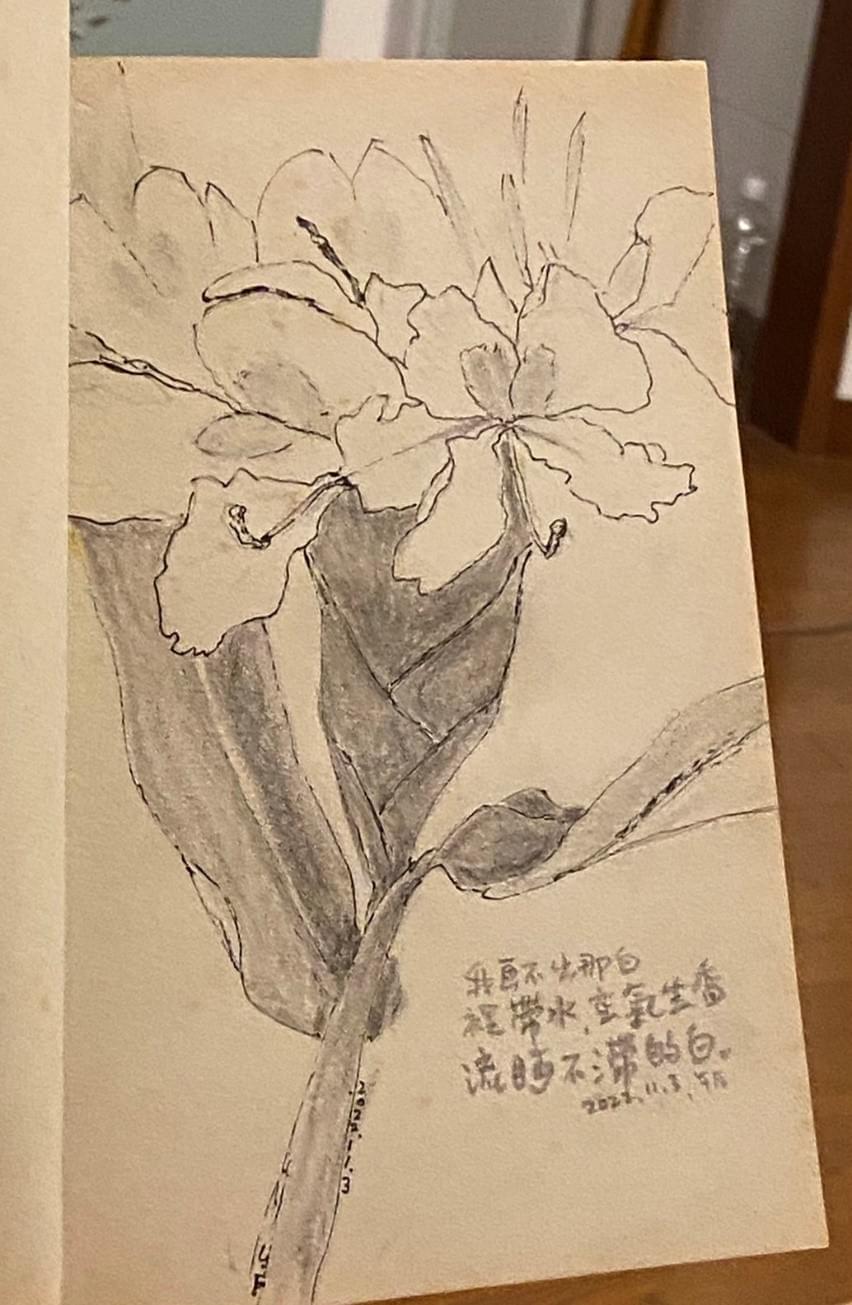 我畫不出那白
帶水,空氣生香
流不滯的白。
2022.11.3,
2022.11.3